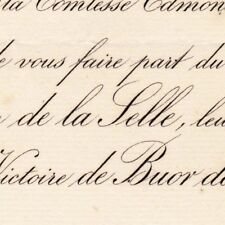 la Comtesse Edmon
de vous faire part du
de la Selle, leu
Victoire de Buor d